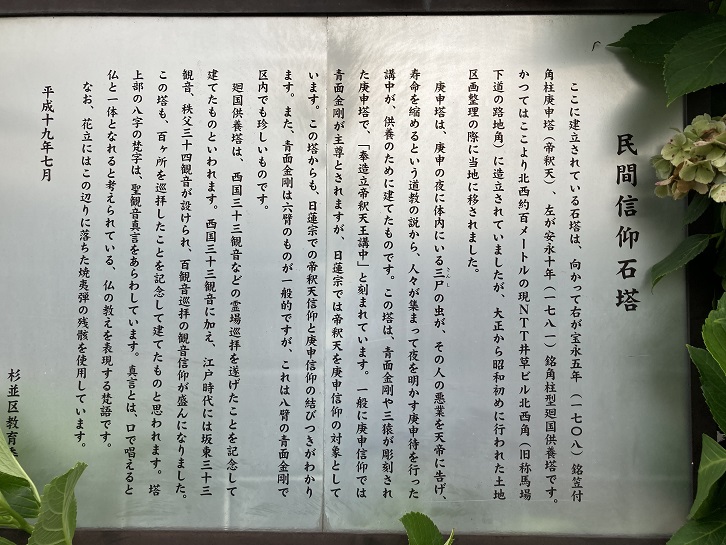 民間信仰石塔
ここに建立されている石塔は、向かって右が宝永五年（一七〇八）銘笠付
角柱庚申塔（帝釈天）、左が安永十年（一七八一）銘角柱型廻国供養塔です。
かつてはここより北西約百メートルの現NTT井草ビル北西角（旧称馬場
下道の路地角）に造立されていましたが、大正から昭和初めに行われた土地
区画整理の際に当地に移されました。
庚申塔は、庚申の夜に体内にいる三尸の虫が、その人の悪業を天帝に告げ、
寿命を縮めるという道教の説から、人々が集まって夜を明かす庚申待を行った
講中が、供養のために建てたものです。この塔は、青面金剛や三猿が彫刻され
た庚申塔で、「奉造立帝釈天王講中」と刻まれています。一般に庚申信仰では
青面金剛が主尊とされますが、日蓮宗では帝釈天を庚申信仰の対象として
います。この塔からも、日蓮宗での帝釈天信仰と庚申信仰の結びつきがわかり
ます。また、青面金剛は六臂のものが一般的ですが、これは八臂の青面金剛で
区内でも珍しいものです。
廻国供養塔は、西国三十三観音などの霊場巡拝を遂げたことを記念して
建てたものといわれます。西国三十三観音に加え、江戸時代には坂東三十三
観音、秩父三十四観音が設けられ、百観音巡拝の観音信仰が盛んになりました。
この塔も、百ヶ所を巡拝したことを記念して建てたものと思われます。塔
上部の八字の梵字は、聖観音真言をあらわしています。真言とは、口で唱えると
仏と一体となれると考えられている、仏の教えを表現する梵語です。
なお、花立にはこの辺りに落ちた焼夷弾の残骸を使用しています。
平成十九年七月
杉並区教育委